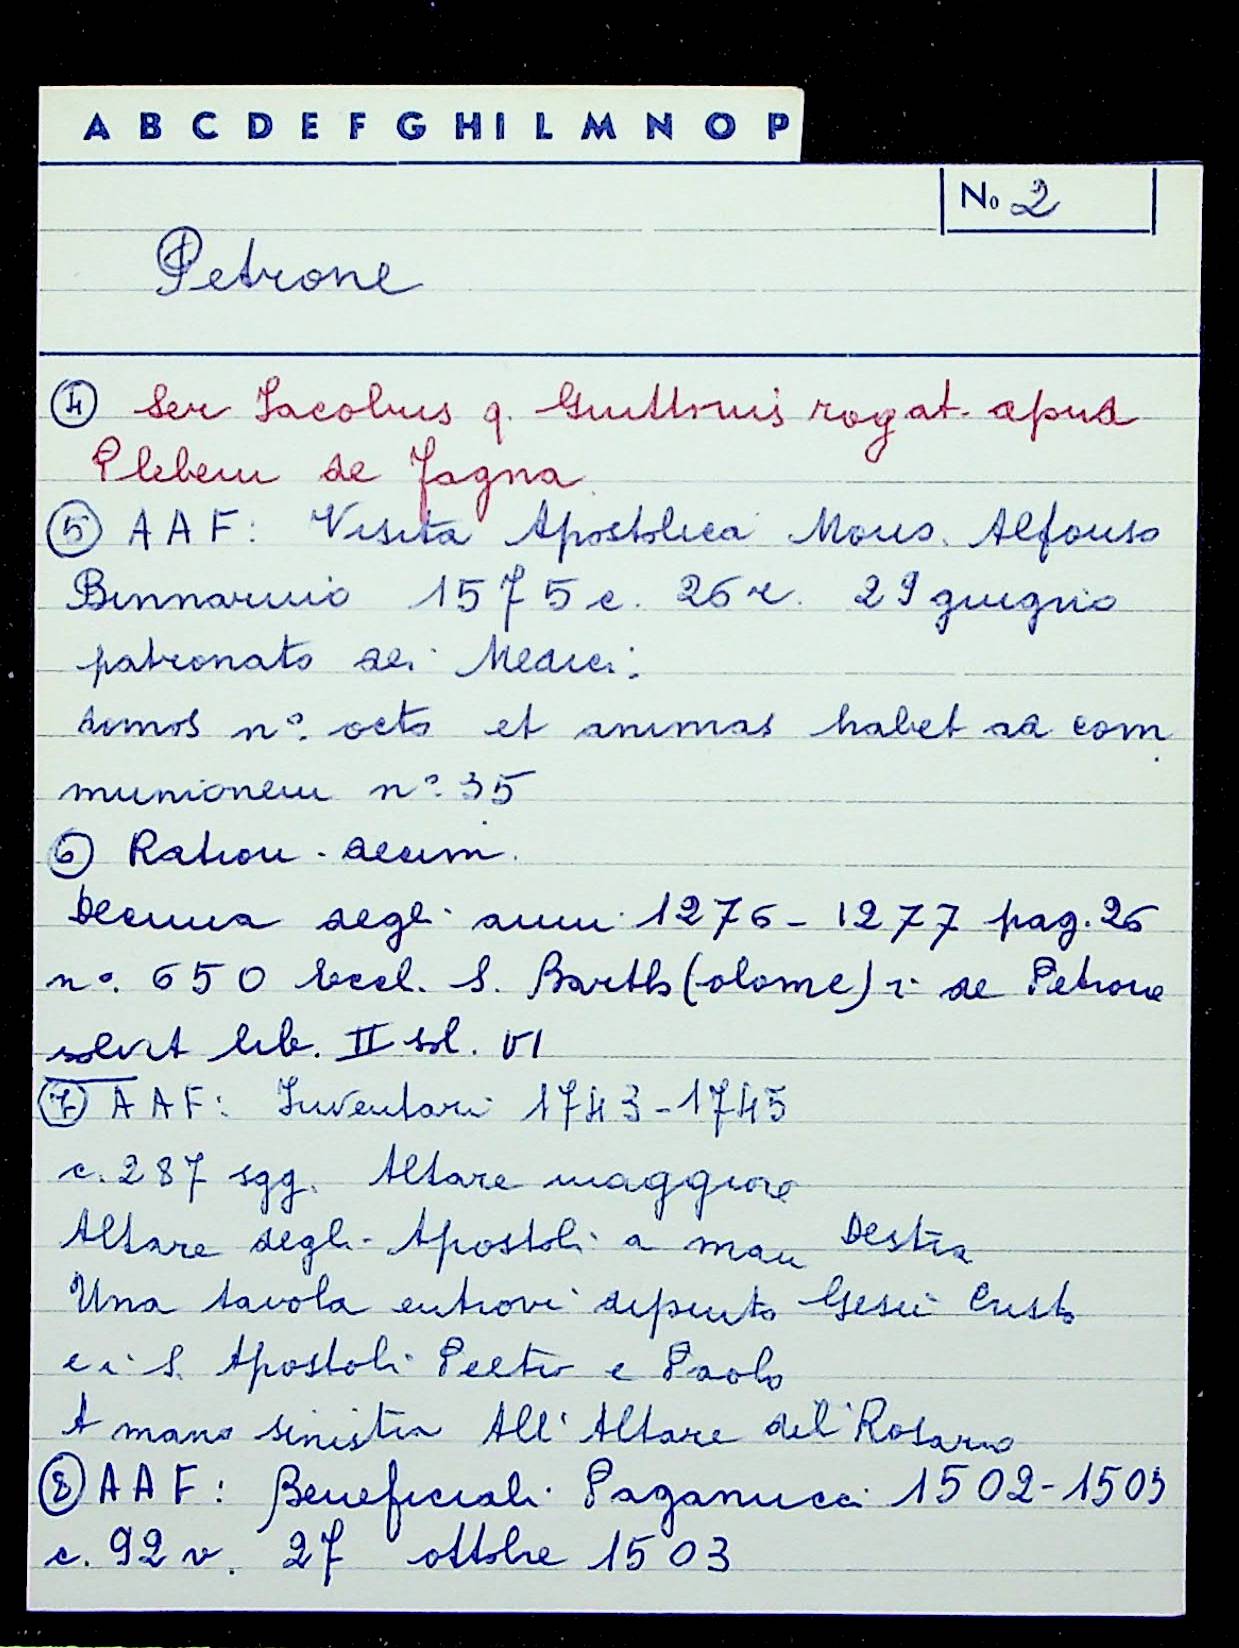 A B C D E F G H I L M N O P
No 2
Petrone
④ Ser Jacobus q. Guittonis rogat. apud
Plebem de Fagna
⑤ AAF: Visita Apostolica Mons. Alfonso
Binnarinio 1575 c. 26 r. 29 giugno
patronato dei Medici:
domos n°. octo et animas habet ad com
munionem n°. 35
⑥ Ration. decim.
Decima degli anni 1276-1277 pag. 26
n°. 650 Eccl. S. Barth(olome)i de Petrone
solvit lib. II sol. VI
⑦ AAF: Inventari 1743-1745
c. 287 sgg. Altare maggiore
Altare degli Apostoli a man Destra
Una tavola entrovi dipinto Gesù Cristo
e i S. Apostoli Pietro e Paolo
A mano sinistra All'Altare del Rosario
⑧ AAF: Beneficiali Paganucci 1502-1503
c. 92 v. 27 ottobre 1503